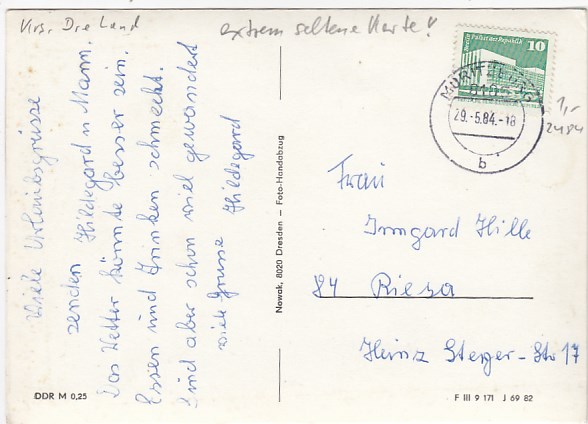 Vrs. Dre Land
extrem seltene Karte!
Berlin, Palast der Republik
10
DDR
MORITZBURG
8105
29.-5.84.-18
b
1,-
2484
Viele Urlaubsgrüsse
senden Hildegard u. Mann.
Das Wetter könnte besser sein.
Essen und Trinken schmeckt.
Sind aber schon viel gewandert
viele Grüsse Hildegard
Nowak, 8020 Dresden – Foto-Handabzug
Frau
Irmgard Hille
84 Riesa
Heinz Steyer-Str 17
DDR M 0,25
F III 9 171 J 69 82